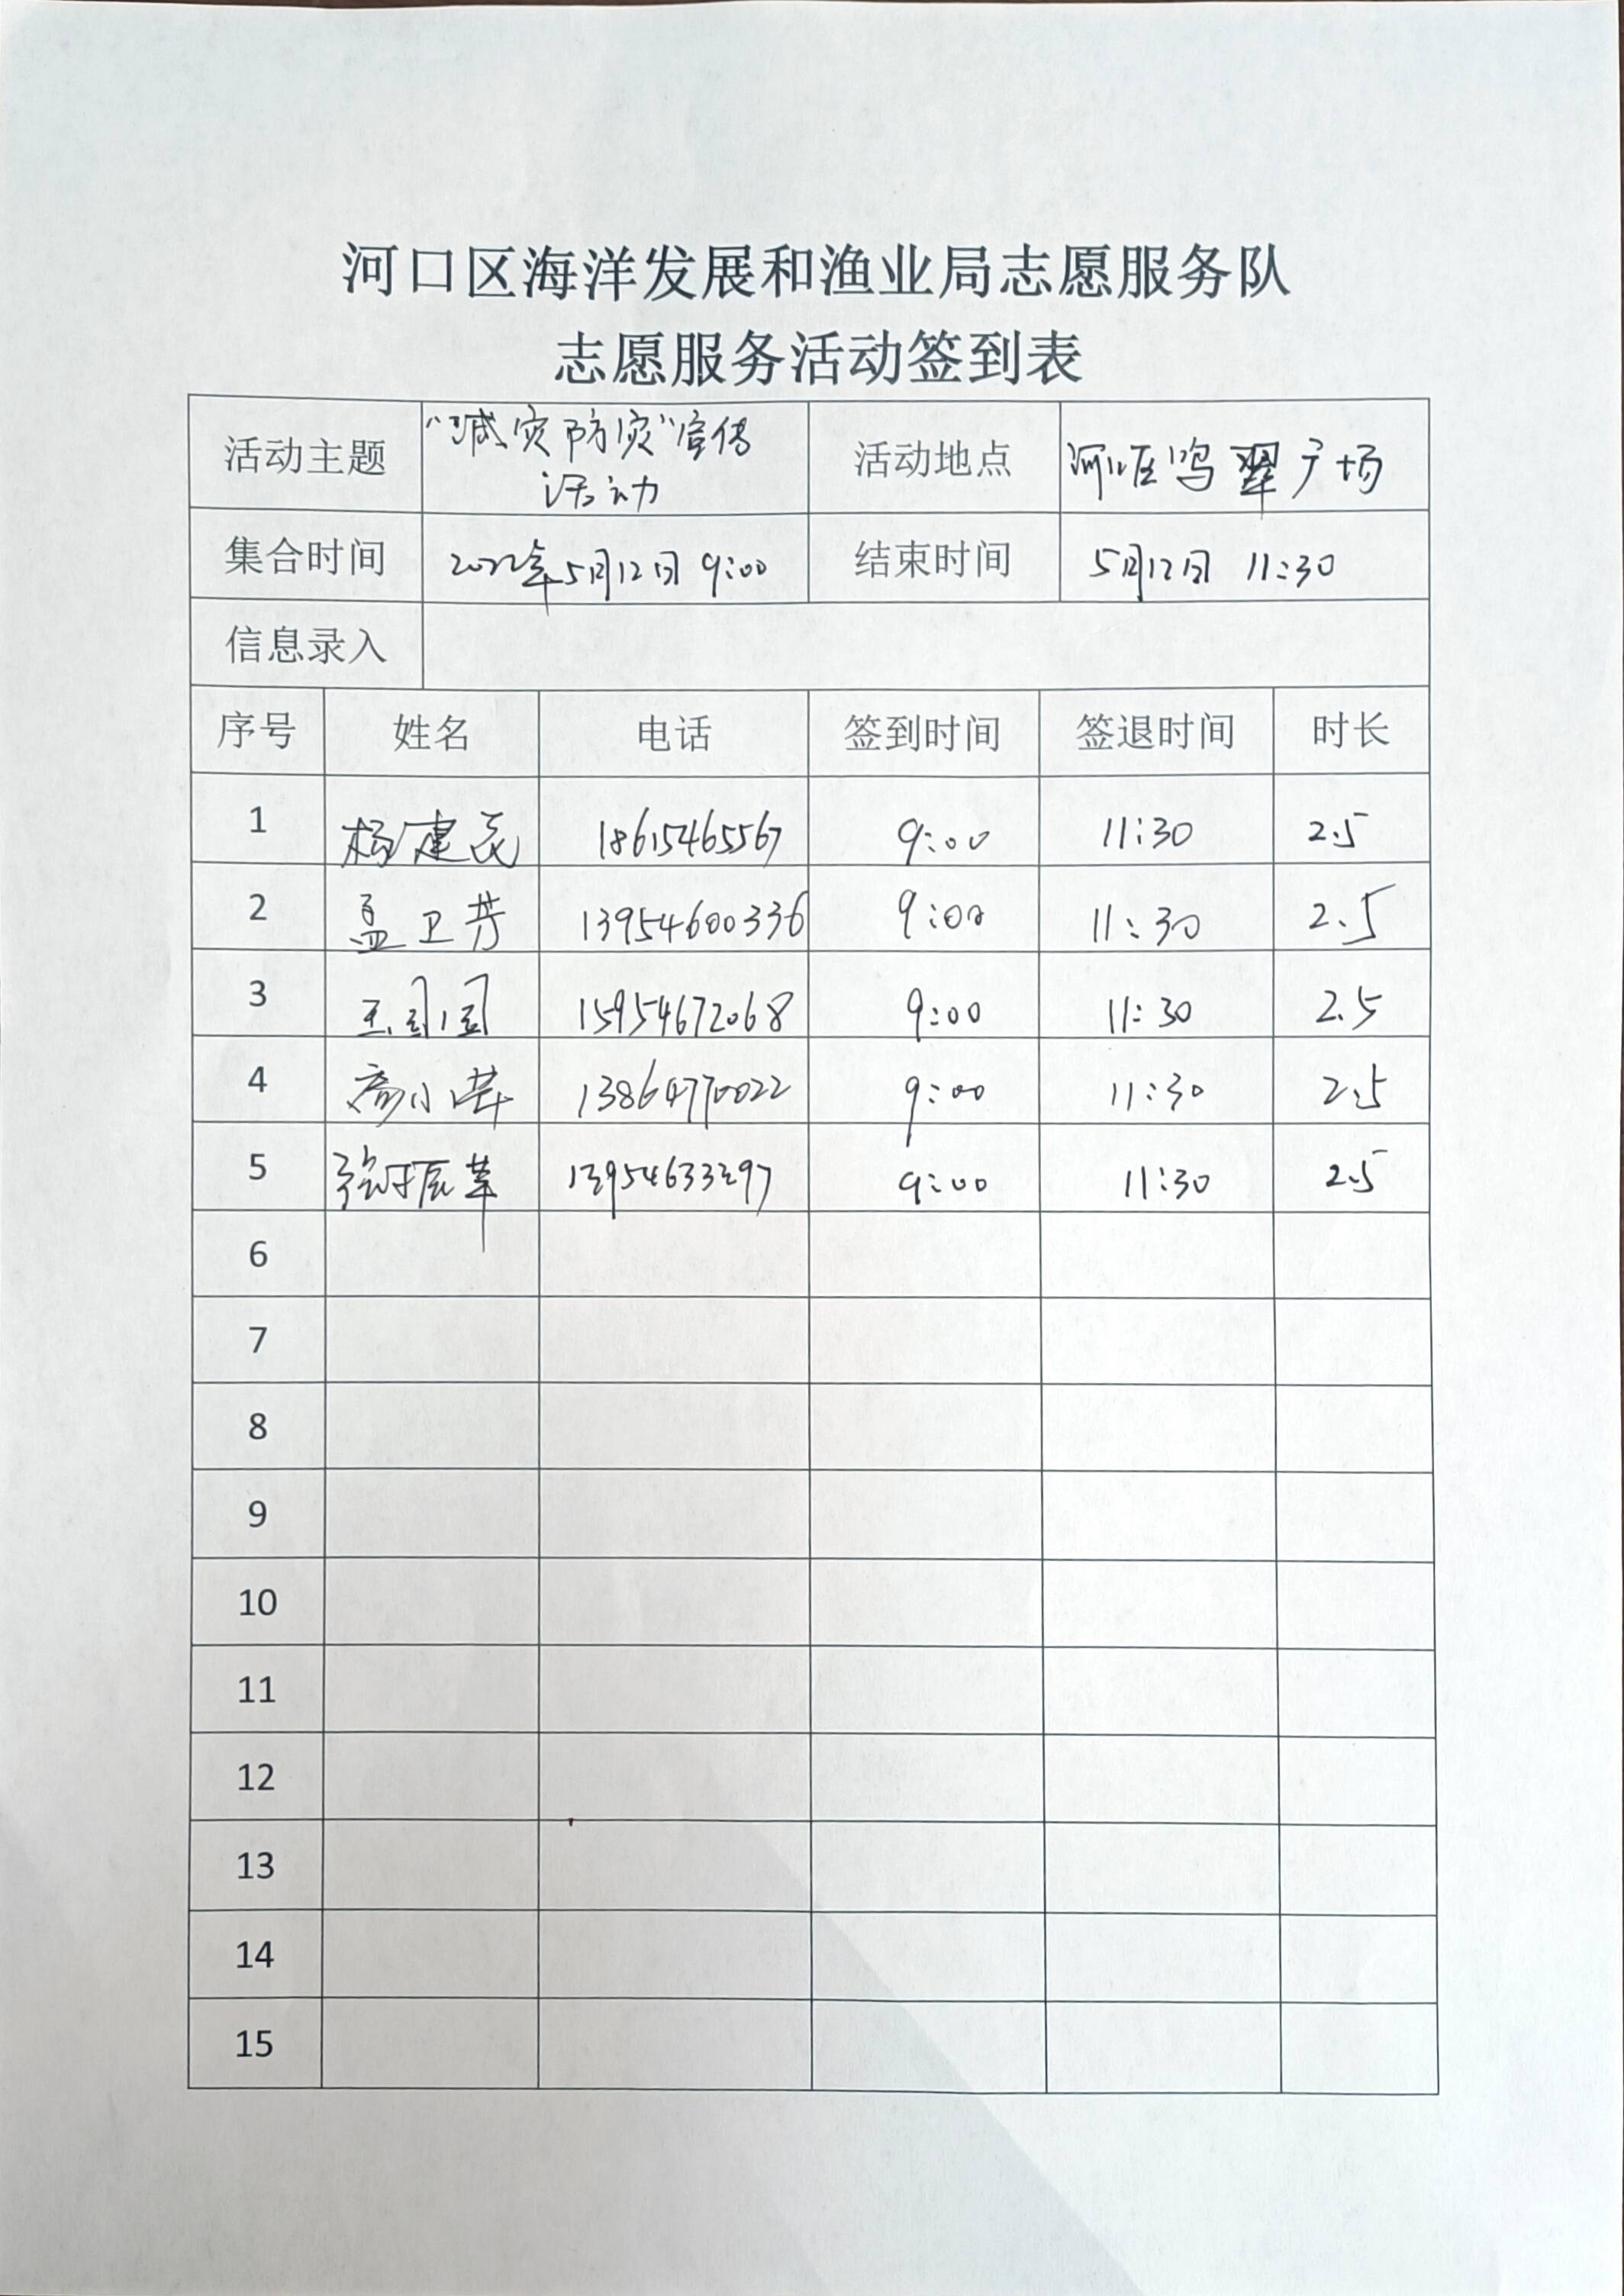 河口区海洋发展和渔业局志愿服务队
志愿服务活动签到表
活动主题 “减灾防灾”宣传活动 活动地点 河口区鸣翠广场
集合时间 2022年5月12日 9:00 结束时间 5月12日 11:30
信息录入
序号 姓名 电话 签到时间 签退时间 时长
1 杨建民 18615465567 9:00 11:30 2.5
2 孟卫芳 13954600336 9:00 11:30 2.5
3 15954672068 9:00 11:30 2.5
4 13864770022 9:00 11:30 2.5
5 13954633297 9:00 11:30 2.5
6
7
8
9
10
11
12
13
14
15